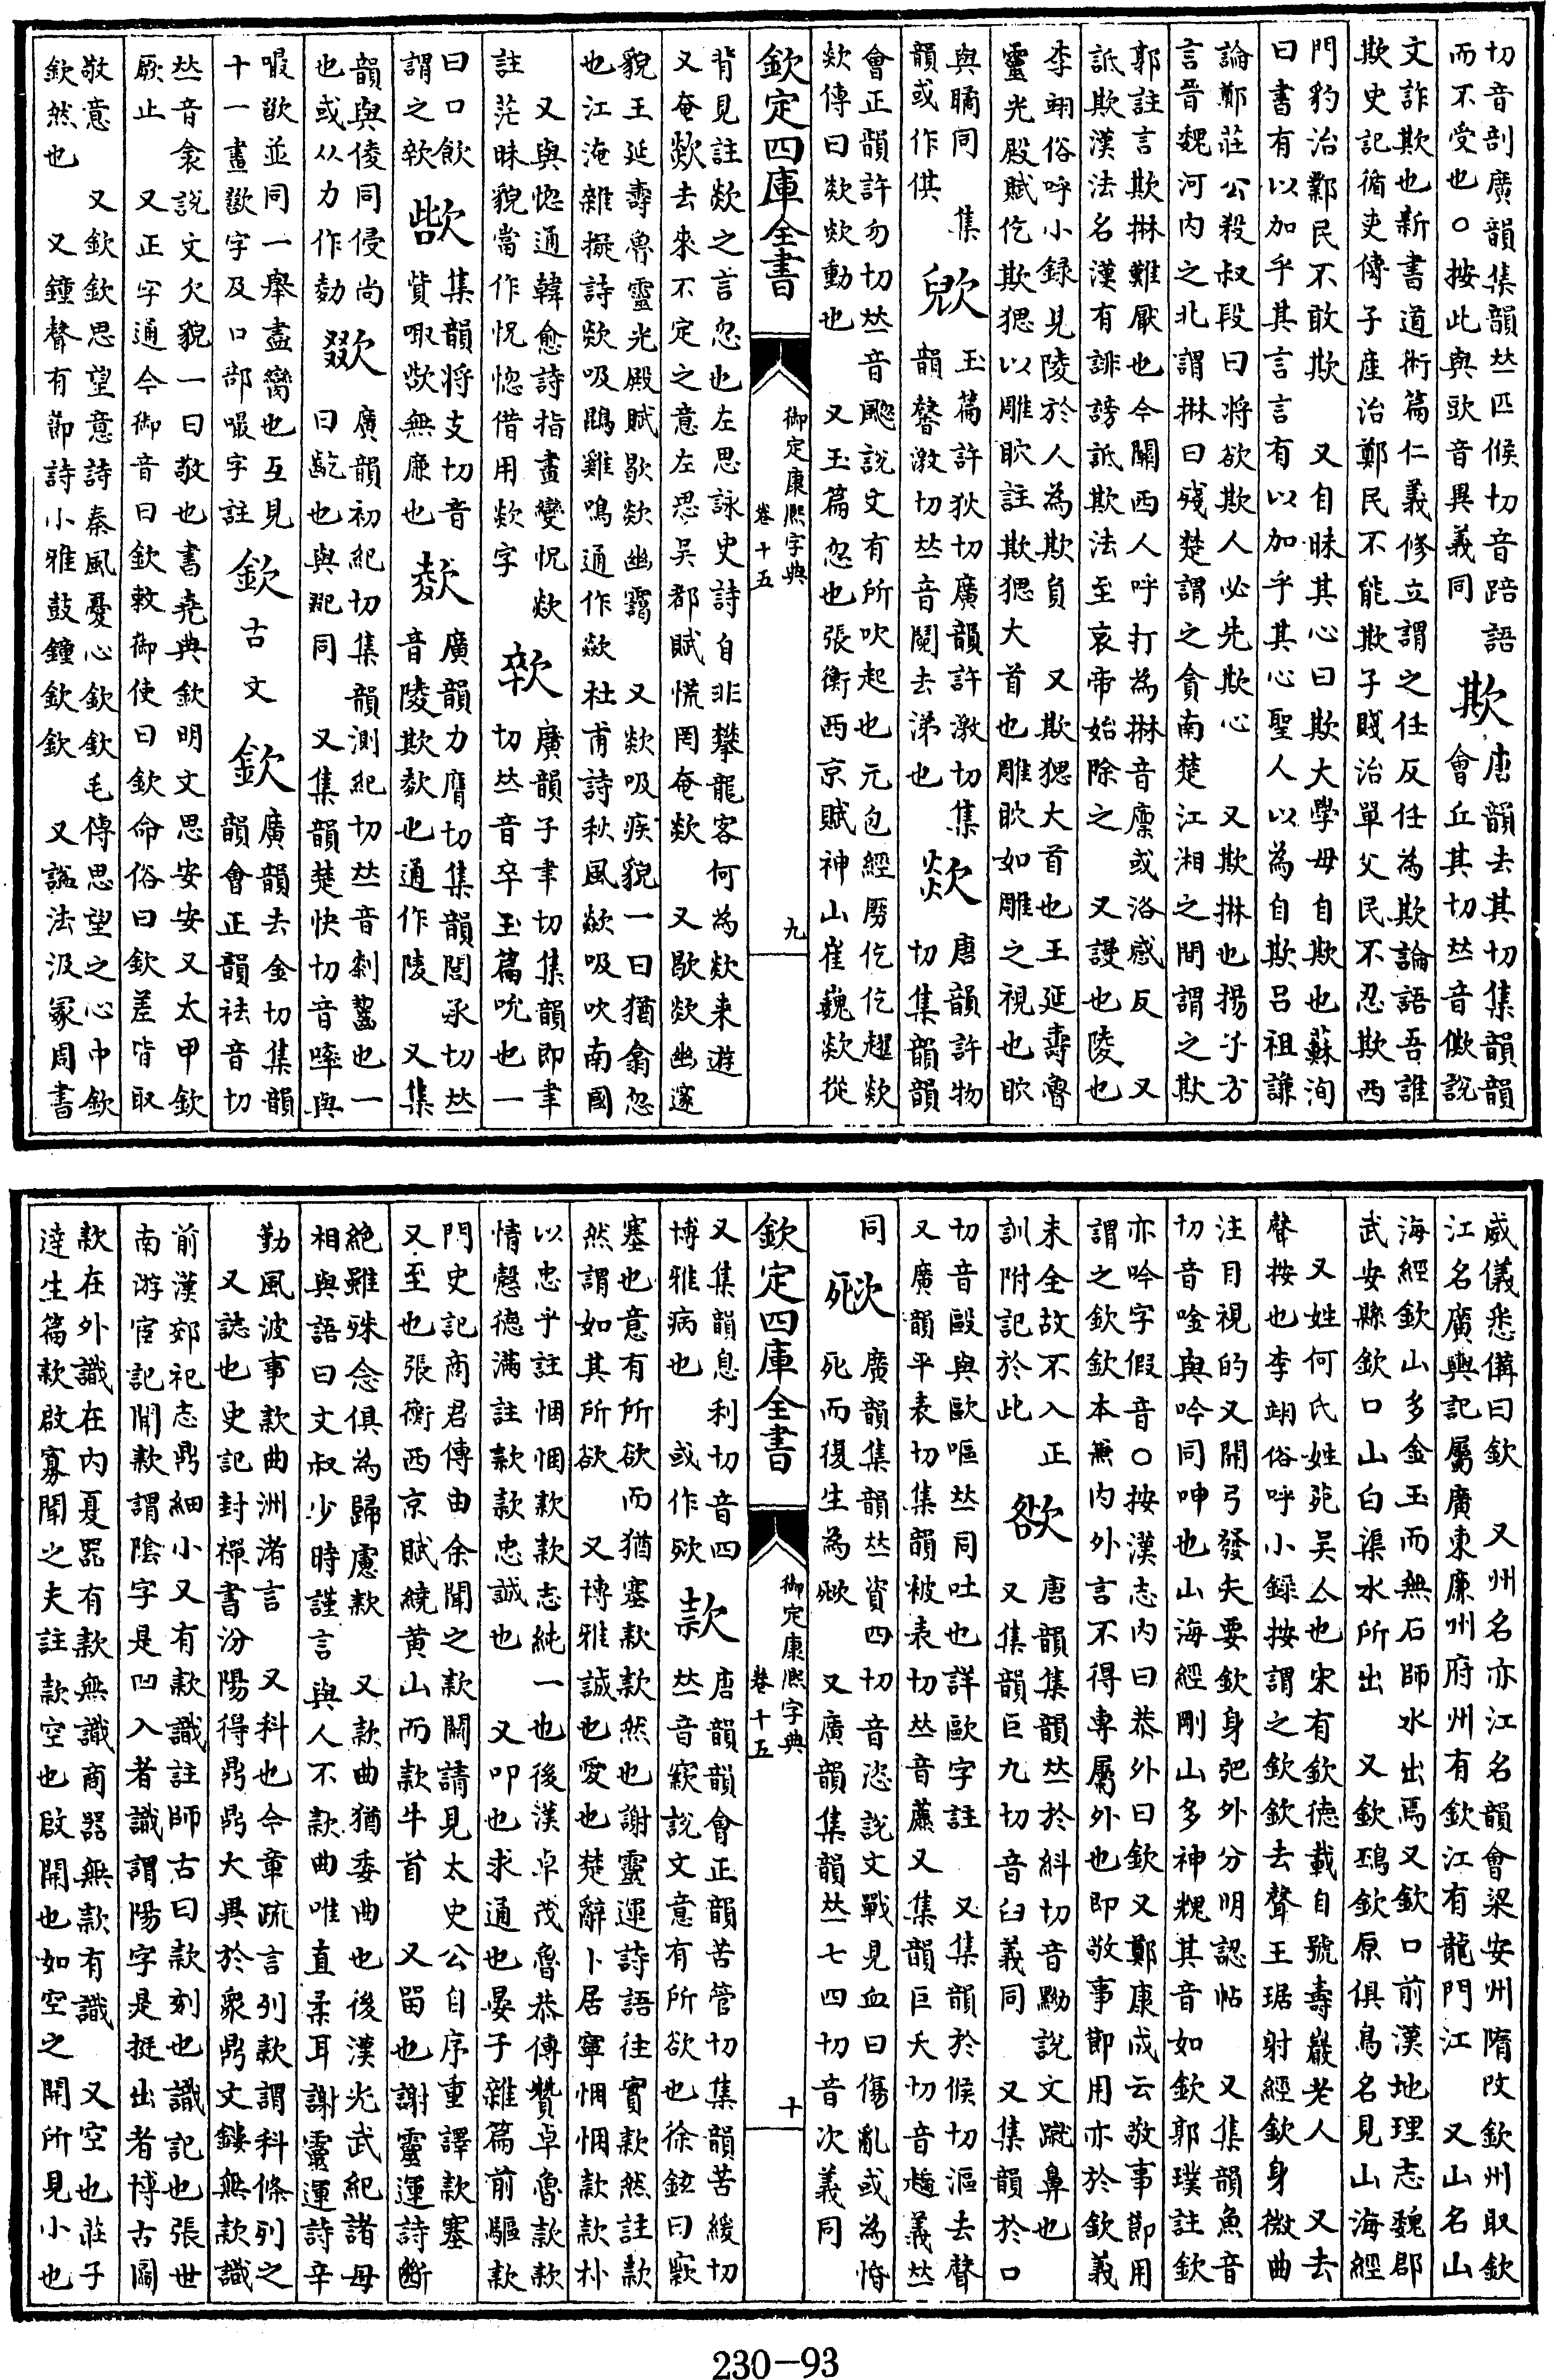 切音剖廣韻集韻𠀤匹候切音踣語而不受也○按此與音異義同 欺 唐韻去其切集韻韻會丘其切𠀤音僛說
文詐欺也新書道術篇仁義修立謂之任反任為欺論語吾誰
欺史記循吏傳子產治鄭民不能欺子賤治單父民不忍欺西
門豹治鄴民不敢欺 又自昧其心曰欺大學毋自欺也蘇洵
曰書有以加乎其言言有以加乎其心聖人以為自欺呂祖謙
論鄭莊公殺叔段曰將欲欺人必先欺心 又欺惏也揚子方
言晉魏河內之北謂惏曰殘楚謂之貪南楚江湘之間謂之欺
郭註言欺惏難厭也今關西人呼打為惏音廩或洛感反 又
詆欺漢法名漢有誹謗詆欺法至哀帝始除之 又謾也陵也
李翊俗呼小録見陵於人為欺負 又欺㥾大首也王延壽魯
靈光殿賦仡欺㥾以雕𥄎註欺㥾大首也雕𥄎如雕之視也𥄎
與瞲同 集韻或作倛 玉篇許狄切廣韻許激切集韻馨激切𠀤音鬩去涕也 欻 唐韻許物切集韻韻
會正韻許勿切𠀤音颮說文有所吹起也元包經厲仡仡趩欻
欻傳曰欻欻動也 又玉篇忽也張衡西京賦神山崔巍欻從
欽定四庫全書 御定康熙字典 卷十五 九
背見註欻之言忽也左思詠史詩自非攀龍客何為欻来遊
又奄欻去來不定之意左思吳都賦慌罔奄欻 又歇欻幽邃
貌王延壽魯靈光殿賦歇欻幽靄 又欻吸疾貌一曰猶翕忽
也江淹雜擬詩欻吸鵾雞鳴通作歘 杜甫詩秋風歘吸吹南國
註 又與惚通韓愈詩指畫變怳欻茫昧貌當作怳惚借用欻字 廣韻子聿切集韻即聿切𠀤音卒玉篇吮也一
曰口飲謂之 㰣 集韻將支切音貲㖡㰣無廉也 廣韻力膺切集韻閭承切𠀤音陵欺也通作陵 又集
韻與倰同侵尚也或从力作勑 歠 廣韻初紀切集韻測紀切𠀤音剗齧也一曰齔也與齓同 又集韻楚快切音嘬與
嘬歠並同一舉盡臠也互見十一畫歠字及口部嘬字註 欽 古文 欽 廣韻去金切集韻韻會正韻祛音切
𠀤音衾說文欠貌一曰敬也書堯典欽明文思安安又太甲欽
厥止 又正字通今御音曰欽敕御使曰欽命俗曰欽差皆取
敬意 又欽欽思望意詩秦風憂心欽欽毛傳思望之心中欽
欽然也 又鐘聲有節詩小雅鼓鐘欽欽 又諡法汲冢周書
威儀悉備曰欽 又州名亦江名韻會梁安州隋改欽州取欽
江名廣輿記屬廣東廉州府州有欽江有龍門江 又山名山
海經欽山多金玉而無石師水出焉又欽口前漢地理志魏郡
武安縣欽口山白渠水所出 又欽䲹欽原俱鳥名見山海經
又姓何氏姓苑吳人也宋有欽德載自號壽巖老人 又去
聲按也李翊俗呼小録按謂之欽欽去聲王琚射經欽身微曲
注目視的又開弓發矢要欽身弝外分明認帖 又集韻魚音
切音唫與吟同呻也山海經剛山多神䰠其音如欽郭璞註欽
亦吟字假音○按漢志內曰恭外曰欽又鄭康成云敬事節用
謂之欽欽本無內外言不得專屬外也即敬事節用亦於欽義
未全故不入正訓附記於此 㰶 唐韻集韻𠀤於糾切音黝說文蹴鼻也 又集韻巨九切音臼義同 又集韻於口
切音毆與歐嘔𠀤同吐也詳歐字註 又集韻於候切漚去聲
又廣韻平表切集韻被表切𠀤音藨又集韻巨夭切音趫義𠀤
同 廣韻集韻𠀤資四切音恣說文戰見血曰傷亂或為惛死而復生為 又廣韻集韻𠀤七四切音次義同
欽定四庫全書 御定康熙字典 卷十五 十
又集韻息利切音四博雅病也 或作 款 唐韻韻會正韻苦管切集韻苦緩切𠀤音窾說文意有所欲也徐鉉曰窾
塞也意有所欲而猶塞款款然也謝靈運詩語往實款然註款
然謂如其所欲 又博雅誠也愛也楚辭卜居寧悃悃款款朴
以忠乎註悃悃款款志純一也後漢卓茂魯恭傳贊卓魯款款
情慤德滿註款款忠誠也 又叩也求通也晏子雜篇前驅款
門史記商君傳由余聞之款關請見太史公自序重譯款塞
又至也張衡西京賦繞黃山而款牛首 又留也謝靈運詩斷
絕雖殊念俱為歸慮款 又款曲猶委曲也後漢光武紀諸母
相與語曰文叔少時謹言與人不款曲唯直柔耳謝靈運詩辛
勤風波事款曲洲渚言 又科也今章疏言列款謂科條列之
又誌也史記封禪書汾陽得鼎鼎大異於衆鼎文鏤無款識
前漢郊祀志鼎細小又有款識註師古曰款刻也識記也張世
南游宦記聞款謂陰字是凹入者識謂陽字是挺出者博古圖
款在外識在內夏器有款無識商器無款有識 又空也莊子
達生篇款啟寡聞之夫註款空也啟開也如空之開所見小也
230-93